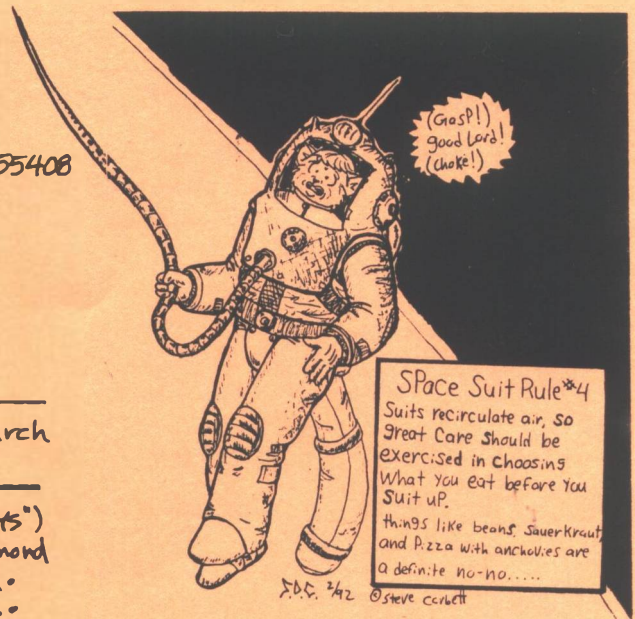 55408
rch
ts")
mond
(Gasp!)
good Lord!
(choke!)
SPace Suit Rule #4
Suits recirculate air, so
great Care should be
exercised in Choosing
What you eat before you
Suit up.
things like beans, SauerKraut,
and Pizza with anchovies are
a definite no-no.....
S.D.C. 2/92 ©steve corbett